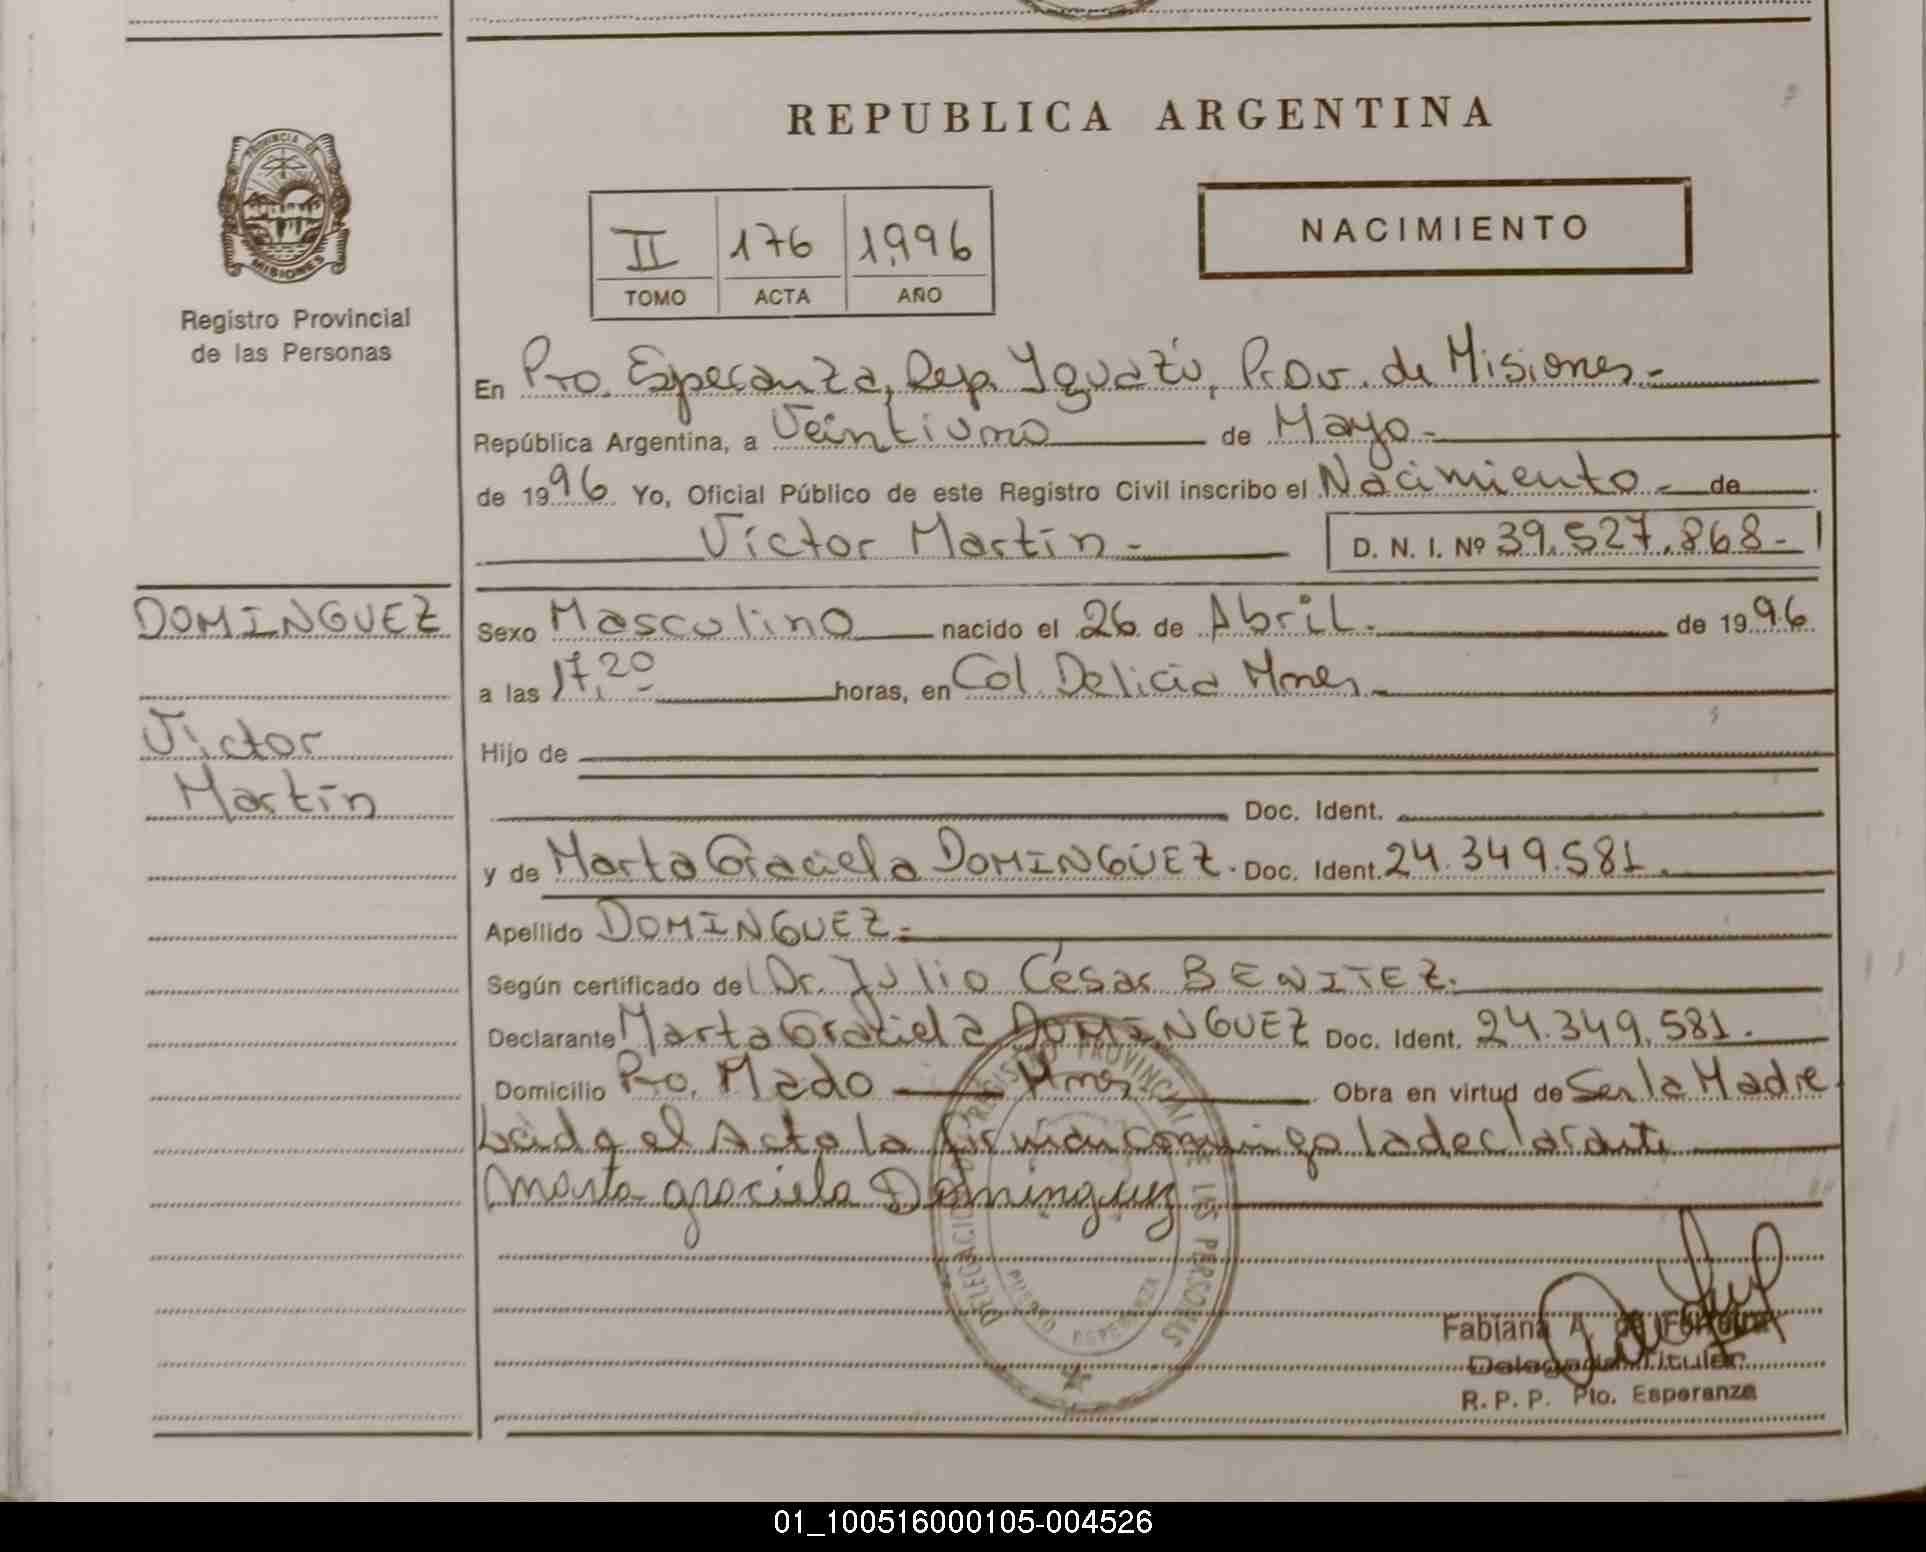 REPUBLICA ARGENTINA
PROVINCIA DE
MISIONES
Registro Provincial
de las Personas
II 176 1,996
TOMO ACTA AÑO
NACIMIENTO
En Pto. Esperanza, Dep. Yguazú, Prov. de Misiones.-
República Argentina, a Veintiuno de Mayo.-
de 1996 Yo, Oficial Público de este Registro Civil inscribo el Nacimiento.- de
Víctor Martín.- D. N. I. Nº 39.527.868.-
DOMINGUEZ
Víctor
Martín
Sexo Masculino nacido el 26 de Abril. de 1996
a las 17,20 horas, en Col. Delicia Mnes.-
Hijo de
Doc. Ident.
y de Marta Graciela DOMINGUEZ. Doc. Ident. 24.349.581.
Apellido DOMINGUEZ.-
Según certificado del Dr. Julio César BENITEZ.
Declarante Marta Graciela DOMINGUEZ Doc. Ident. 24.349.581.
Domicilio Pto. Mado Mnes. Obra en virtud de Ser la Madre
Leída el Acta la firman conmigo la declarante
Marta graciela Dominguez
DELEGACION REGISTRO PROVINCIAL DE LAS PERSONAS
PUERTO ESPERANZA
Fabiana A. de
Delegada Titular
R. P. P. Pto. Esperanza
01_100516000105-004526